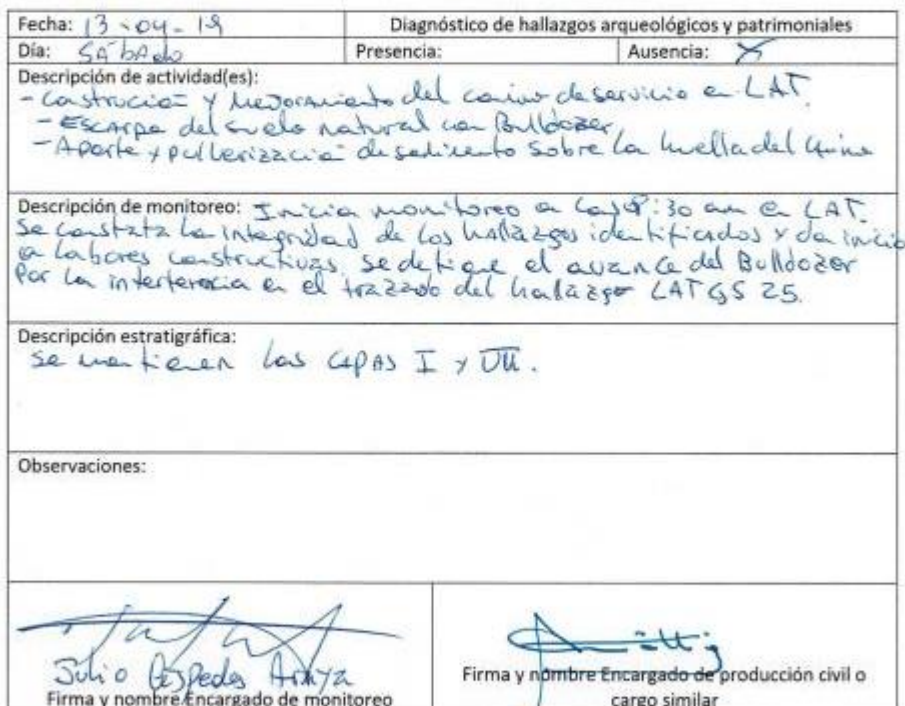 Fecha: 13-04-19 Diagnóstico de hallazgos arqueológicos y patrimoniales
Día: SÁbADo Presencia: Ausencia: X
Descripción de actividad(es):
- Construcción y Mejoramiento del camino de servicio en LAT.
- Escarpe del suelo natural con Bulldozer,
- Aporte y pulverización de sedimento sobre la huella del
Descripción de monitoreo: Inicia monitoreo a las 8:30 am en LAT.
Se constata la integridad de los hallazgos identificados y da inicio
a labores constructivas. Se detiene el avance del Bulldozer
Por la interferencia en el trazado del hallazgo LAT GS 25.
Descripción estratigráfica:
Se mantienen las CAPAS I y VII.
Observaciones:
Julio Céspedes Araya
Firma y nombre Encargado de monitoreo
Firma y nombre Encargado de producción civil o
cargo similar